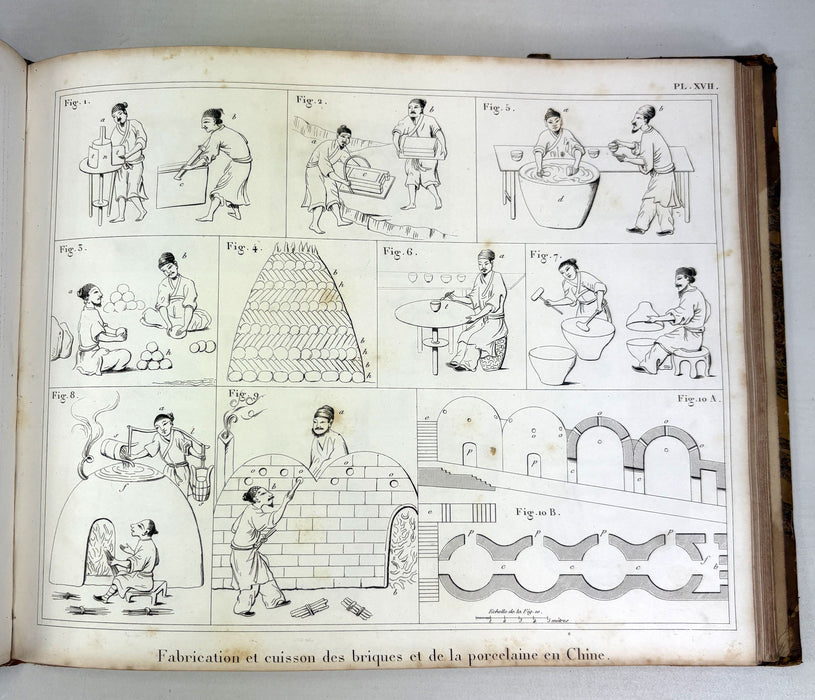 PL. XVII.
Fig. 1.
a
b
n
c
Fig. 2.
a
b
Fig. 5.
a
b
d
Fig. 3.
a
b
h
Fig. 4.
b
h
b
h
Fig. 6.
a
t
Fig. 7.
Fig. 8.
a
f
Fig. 9.
a
o
o
o
o
b
b
Fig. 10 A.
e
o
o
o
o
p
p
c
c
Fig. 10 B.
e
p
p
p
p
c
c
c
f
b
Echelle de la Fig. 10.
5 mètres
Fabrication et cuisson des briques et de la porcelaine en Chine.